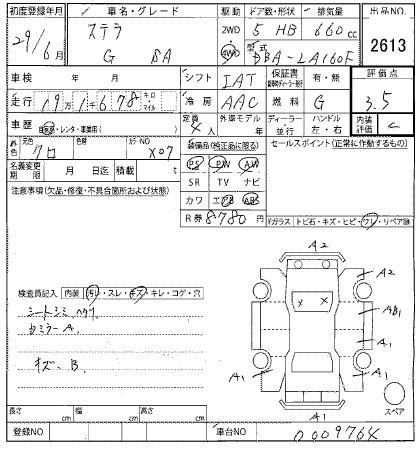 初度登録年月 車名・グレード 駆動 ドア数・形状 排気量 出品NO.
29/6月 ステラ G SA 2WD 4WD 5 HB 660cc 2613
型式 DBA-LA160F
車検 年 月 シフト IAT 保証書 有・無 評価点
走行 19万1千678 キロ マイル 冷房 AAC 燃料 G 3.5
車歴 自家用・レンタ・事業用( ) 定員 4人 外車モデル 年 ディーラー 並行 ハンドル 左・右 内装評価 C
外色 元色 クロ 色替 カラーNO X07 装備品(純正品に限る) セールスポイント(正常に作動するもの)
名義変更期限 月 日迄 積載 t PS PW AW
注意事項(欠品・修復・不具合箇所および状態) SR TV ナビ
カワ エアB ABS
R券 8780円
Fガラス トビ石・キズ・ヒビ・ワレ・リペア跡
A2
A2
検査員記入 内装 汚レ・スレ・キズ・キレ・コゲ・穴
シートシミ ハクリ AB1
右ミラーA A1
キズB A1 A1
A1 スペア
長さ cm 幅 cm 高さ cm
登録NO 車台NO 0009764